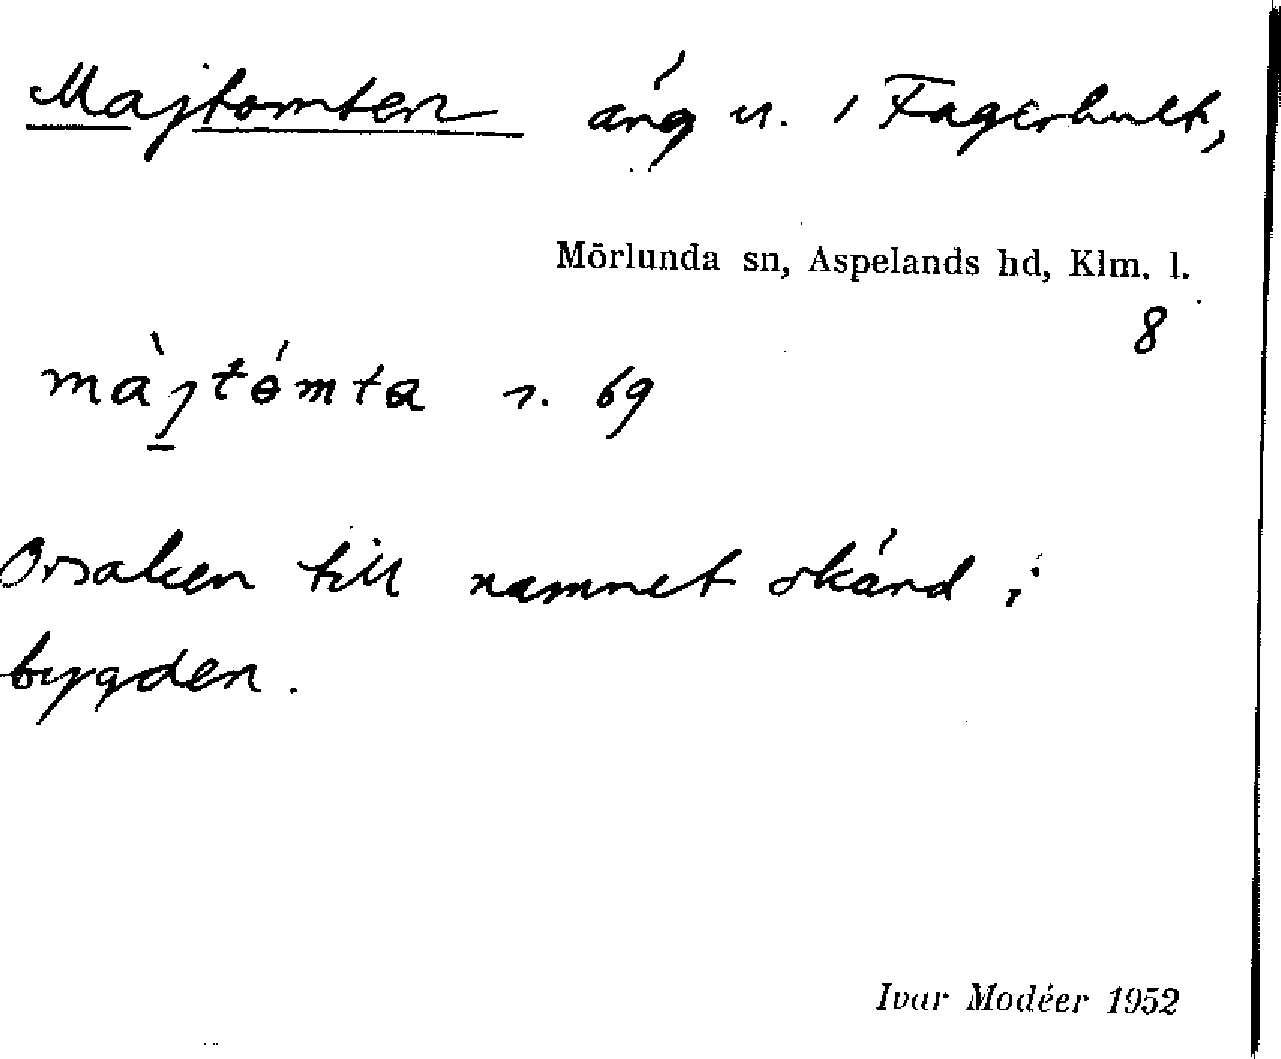 Majtomten äng n. i Fagerhult,
Mörlunda sn, Aspelands hd, Klm. l.
8
màjtómta r. 69
Orsaken till namnet okänd i
bygden.
Ivar Modéer 1952